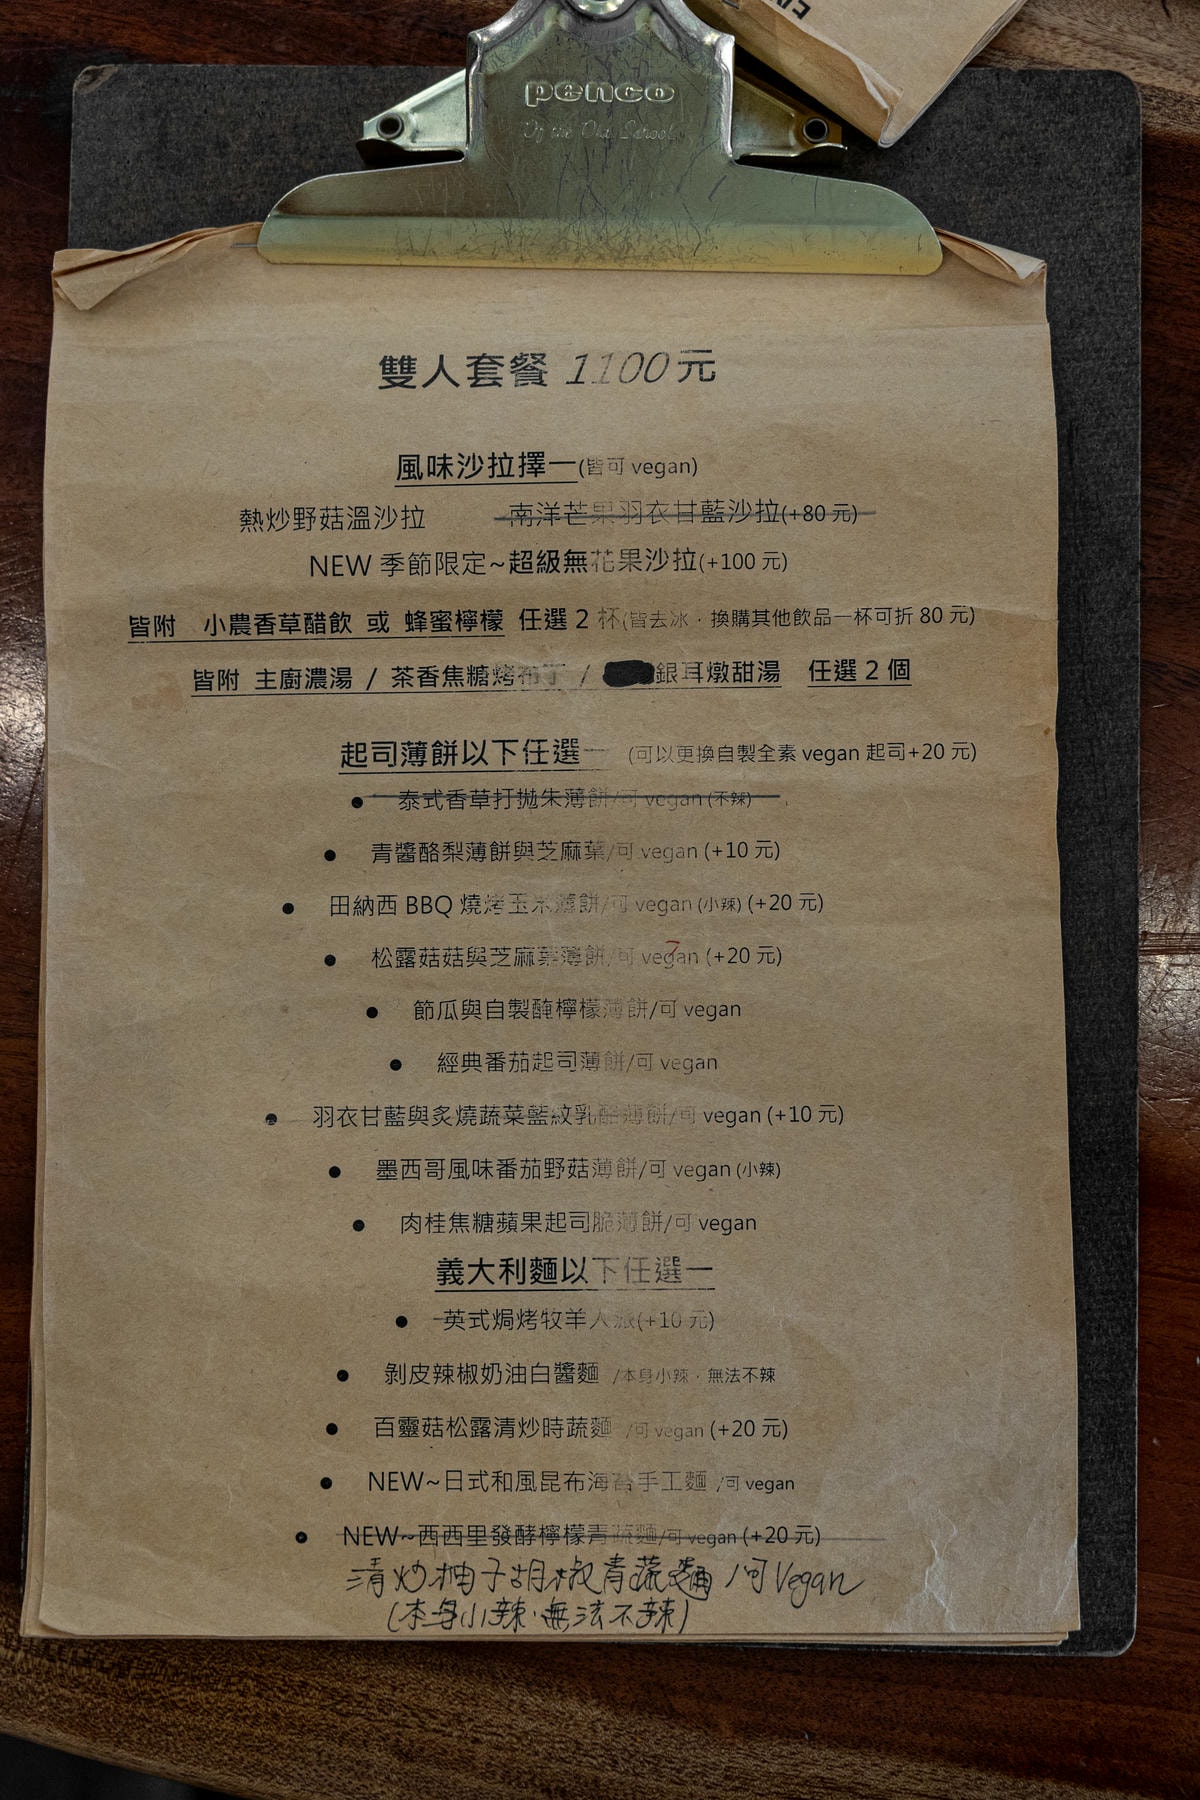 penco
Of the Old School
雙人套餐 1100元
風味沙拉擇一(皆可 vegan)
熱炒野菇溫沙拉 南洋芒果羽衣甘藍沙拉(+80 元)
NEW 季節限定~超級無花果沙拉(+100 元)
皆附 小農香草醋飲 或 蜂蜜檸檬 任選 2 杯(皆去冰．換購其他飲品一杯可折 80 元)
皆附 主廚濃湯 / 茶香焦糖烤布丁 / 銀耳燉甜湯 任選 2 個
起司薄餅以下任選一 (可以更換自製全素 vegan 起司+20 元)
● 泰式香草打拋朱薄餅/可 vegan (不辣)
● 青醬酪梨薄餅與芝麻葉/可 vegan (+10 元)
● 田納西 BBQ 燒烤玉米薄餅/可 vegan (小辣) (+20 元)
● 松露菇菇與芝麻葉薄餅/可 vegan (+20 元)
● 節瓜與自製醃檸檬薄餅/可 vegan
● 經典番茄起司薄餅/可 vegan
● 羽衣甘藍與炙燒蔬菜藍紋乳酪薄餅/可 vegan (+10 元)
● 墨西哥風味番茄野菇薄餅/可 vegan (小辣)
● 肉桂焦糖蘋果起司脆薄餅/可 vegan
義大利麵以下任選一
● 英式焗烤牧羊人派(+10 元)
● 剝皮辣椒奶油白醬麵 /本身小辣．無法不辣
● 百靈菇松露清炒時蔬麵 /可 vegan (+20 元)
● NEW~日式和風昆布海苔手工麵 /可 vegan
● NEW~西西里發酵檸檬青蔬麵/可 vegan (+20 元)
清炒柚子胡椒青蔬麵 /可 Vegan
(本身小辣．無法不辣)